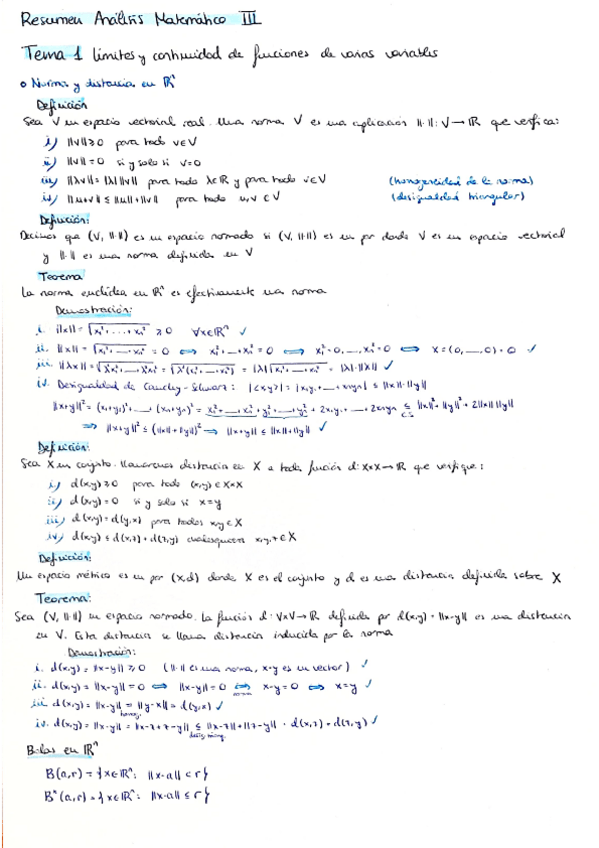 Resumen Análisis Matemático III
Tema 1 Límites y continuidad de funciones de varias variables
• Norma y distancia en ℝⁿ
Definición
Sea V un espacio vectorial real. Una norma V es una aplicación ||·||: V → ℝ que verifica:
i) ||v|| ≥ 0 para todo v∈V
ii) ||v|| = 0 si y solo si v=0
iii) ||λv|| = |λ| ||v|| para todo λ∈ℝ y para todo v∈V (homogeneidad de la norma)
iv) ||u+v|| ≤ ||u|| + ||v|| para todo u,v ∈ V (desigualdad triangular)
Definición:
Decimos que (V, ||·||) es un espacio normado si (V, ||·||) es un par donde V es un espacio vectorial
y ||·|| es una norma definida en V
Teorema
La norma euclídea en ℝⁿ es efectivamente una norma
Demostración:
i. ||x|| = √(x₁² + ... + xₙ²) ≥ 0 ∀x∈ℝⁿ ✓
ii. ||x|| = √(x₁² + ... + xₙ²) = 0 ⟺ x₁² + ... + xₙ² = 0 ⟺ x₁² = 0, ..., xₙ² = 0 ⟺ x = (0, ..., 0) = 0 ✓
iii. ||λx|| = √(λ²x₁² + ... + λ²xₙ²) = √(λ²(x₁² + ... + xₙ²)) = |λ| √(x₁² + ... + xₙ²) = |λ|·||x|| ✓
iv. Desigualdad de Cauchy-Schwarz: |<x,y>| = |x₁y₁ + ... + xₙyₙ| ≤ ||x||·||y||
||x+y||² = (x₁+y₁)² + ... + (xₙ+yₙ)² = x₁² + ... + xₙ² + y₁² + ... + yₙ² + 2x₁y₁ + ... + 2xₙyₙ ≤ ||x||² + ||y||² + 2||x|| ||y||
C-S
⟹ ||x+y||² ≤ (||x|| + ||y||)² ⟹ ||x+y|| ≤ ||x|| + ||y|| ✓
Definición:
Sea X un conjunto. Llamaremos distancia en X a toda función d: X×X → ℝ que verifique:
i) d(x,y) ≥ 0 para todo (x,y) ∈ X×X
ii) d(x,y) = 0 si y solo si x=y
iii) d(x,y) = d(y,x) para todos x,y ∈ X
iv) d(x,y) ≤ d(x,z) + d(z,y) cualesquiera x,y,z ∈ X
Definición:
Un espacio métrico es un par (X,d) donde X es el conjunto y d es una distancia definida sobre X
Teorema:
Sea (V, ||·||) un espacio normado. La función d: V×V → ℝ definida por d(x,y) = ||x-y|| es una distancia
en V. Esta distancia se llama distancia inducida por la norma
Demostración:
i. d(x,y) = ||x-y|| ≥ 0 (||·|| es una norma, x-y es un vector) ✓
ii. d(x,y) = ||x-y|| = 0 ⟺ ||x-y|| = 0 ⟺ x-y = 0 ⟺ x=y ✓
norma
iii. d(x,y) = ||x-y|| = ||y-x|| = d(y,x) ✓
homog.
iv. d(x,y) = ||x-y|| = ||x-z+z-y|| ≤ ||x-z|| + ||z-y|| = d(x,z) + d(z,y) ✓
desig. triang.
Bolas en ℝⁿ
B(a,r) = {x∈ℝⁿ: ||x-a|| < r}
B*(a,r) = {x∈ℝⁿ: ||x-a|| ≤ r}